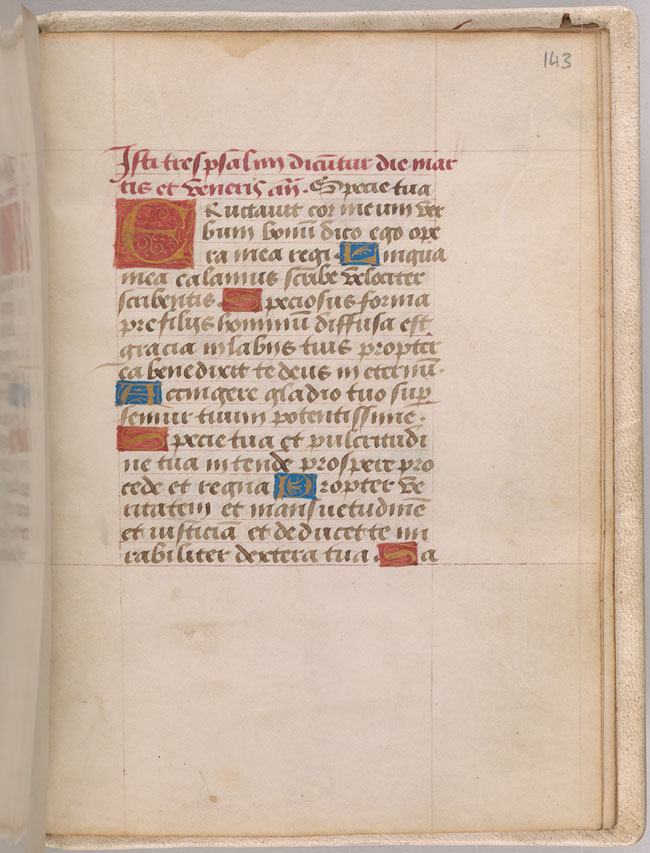 143
Isti tres psalmi dicūtur die mar
tis et veneris añ. Specie tua
Eructavit cor meum ver
bum bonū dico ego ope
ra mea regi. Lingua
mea calamus scribe velociter
scribentis. Speciosus forma
pre filijs hominū diffusa est
gracia in labijs tuis propter
ea benedixit te deus in eternū.
Accingere gladio tuo super
femur tuum potentissime.
Specie tua et pulcritudi
ne tua intende prospere pro
cede et regna Propter ve
ritatem et mansuetudinē
et iusticiā et deducet te mi
rabiliter dextera tua. Sa